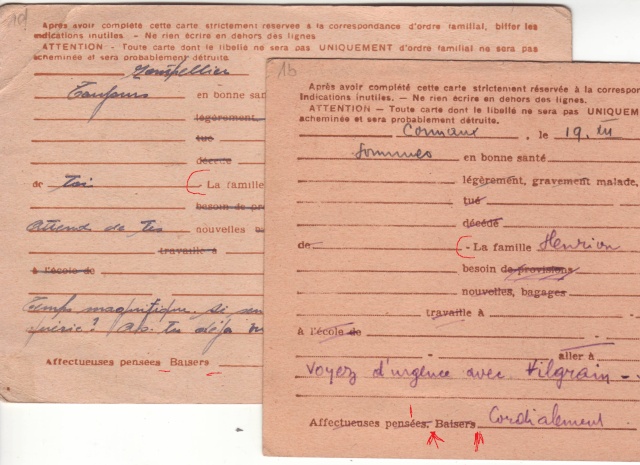 Après avoir complété cette carte strictement réservée à la correspondance d'ordre familial, biffer les
indications inutiles. - Ne rien écrire en dehors des lignes
ATTENTION - Toute carte dont le libellé ne sera pas UNIQUEMENT d'ordre familial ne sera pas
acheminée et sera probablement détruite.
Montpellier
Toujours en bonne san
légèrement
tué
décédé
de toi La famille
besoin de pro
Attend de tes nouvelles
travaille à
à l'école de
Temps magnifique, si
Affectueuses pensées Baisers
1b
Après avoir complété cette carte strictement réservée à la corresponda
Indications inutiles. - Ne rien écrire en dehors des lignes.
ATTENTION - Toute carte dont le libellé ne sera pas UNIQUEM
acheminée et sera probablement détruite.
, le 19. III
Sommes en bonne santé
légèrement, gravement malade,
tué
décédé
de - La famille Henrion
besoin de provisions
nouvelles, bagages
travaille à
à l'école de
aller à
Voyez d'urgence avec Vilgrain -
Affectueuses pensées. Baisers Cordialement